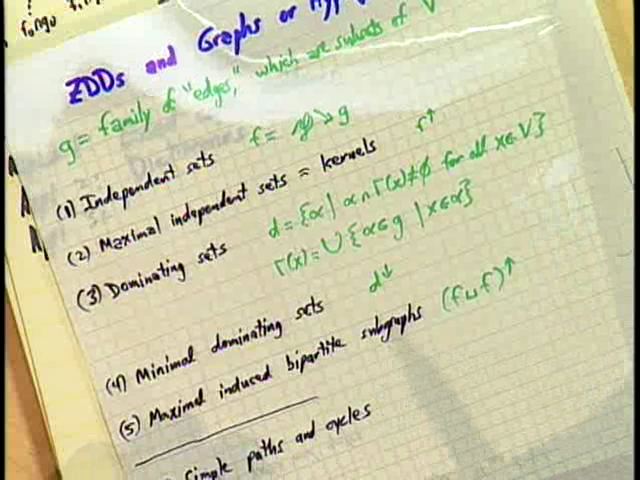 ZDDs and Graphs or Hyp
g = family of "edges," which are subsets of V
(1) Independent sets f = ℘ ↘ g
(2) Maximal independent sets = kernels f↑
(3) Dominating sets d = {α | α ∩ Γ(x) ≠ ∅ for all x ∈ V}
Γ(x) = ∪ {α ∈ g | x ∈ α}
(4) Minimal dominating sets d↓
(5) Maximal induced bipartite subgraphs (f ⊔ f)↑
Simple paths and cycles